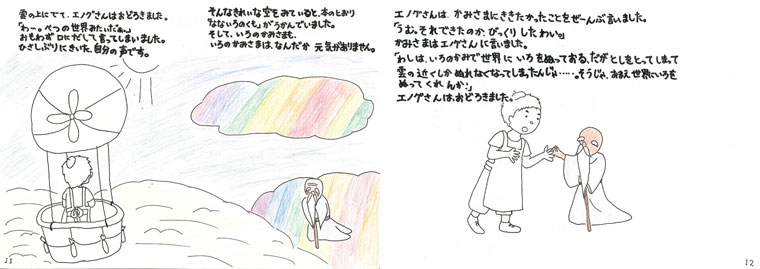 雲の上にでて、エノグさんはおどろきました。
「わー。べつの世界みたいだぁ。」
おもわず口にだして言ってしまいました。
ひさしぶりにきいた、自分の声です。
そんなきれいな空をみていると、本のとおり
「なないろのくも」がうかんでいました。
そして、いろのかみさまも。
いろのかみさまは、なんだか 元気がありません。
11
エノグさんは、かみさまにききたかったことをぜーんぶ言いました。
「うむ。それできたのか。びっくりしたわい。」
かみさまはエノグさんに言いました。
「わしは、いろのかみで世界に いろをぬっておる。だがとしをとってしまって
雲の近くしかぬれなくなってしまったんじゃ……。そうじゃ、おまえ世界にいろを
ぬってくれんか?」
エノグさんは、おどろきました。
12